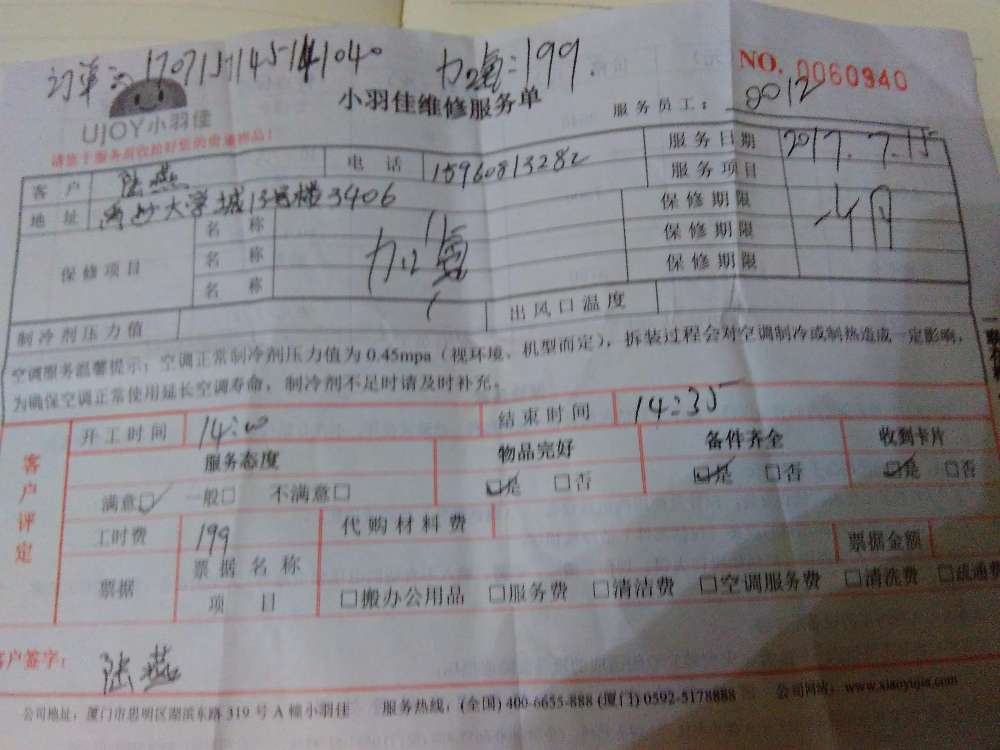 订单:1707157145141040 加氟:199.
NO. 0060940
UJOY小羽佳
小羽佳维修服务单
服务员工: 2012
请您于服务前收拾好您的贵重物品!
客户 陆燕 电话 15960813282 服务日期 2017.7.15
地址 大学城13号楼3406 服务项目
保修项目 名称 加氟 保修期限 一个月
名称 保修期限
名称 保修期限
制冷剂压力值 出风口温度
空调服务温馨提示:空调正常制冷剂压力值为0.45mpa(视环境、机型而定),拆装过程会对空调制冷或制热造成一定影响,
为确保空调正常使用延长空调寿命,制冷剂不足时请及时补充。
客户评定
开工时间 14:00 结束时间 14:35
服务态度 物品完好 备件齐全 收到卡片
满意□ 一般□ 不满意□ □是 □否 □是 □否 □是 □否
工时费 199 代购材料费
票据 票据名称 票据金额
项目 □搬办公用品 □服务费 □清洁费 □空调服务费 □清洗费 □疏通费
客户签字: 陆燕
公司地址:厦门市思明区湖滨东路319号A幢小羽佳 服务热线:(全国)400-6655-888(厦门)0592-5178888 公司网站:www.xiaoyujia.com